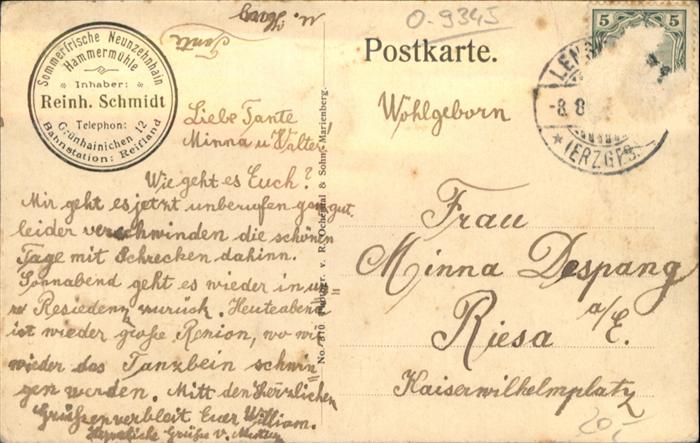 Sommerfrische Neunzehnhain
Hammermühle
Inhaber:
Reinh. Schmidt
Telephon:
Grünhainichen 12
Bahnstation: Reifland
u. Georg
Tante
O-9345
Postkarte.
5 5
-8. 8
* (ERZGEB.
Wohlgeborn
Frau
Minna Despang
Riesa a/E.
Kaiserwilhelmplatz
20,-
Liebe Tante
Minna u Walter
Wie geht es Euch?
Mir geht es jetzt unberufen ganz gut.
leider verschwinden die schönen
Tage mit Schrecken dahinn.
Sonnabend geht es wieder in un
re Resiedenz zurück. Heuteabend
ist wieder große Renion, wo wir
wieder das Tanzbein schwin
gen werden. Mitt den Herzlichen
Grüßen verbleit Euer William.
Herzliche Grüße v.
No. 310 v. R. Ochernal & Sohn, Marienberg.